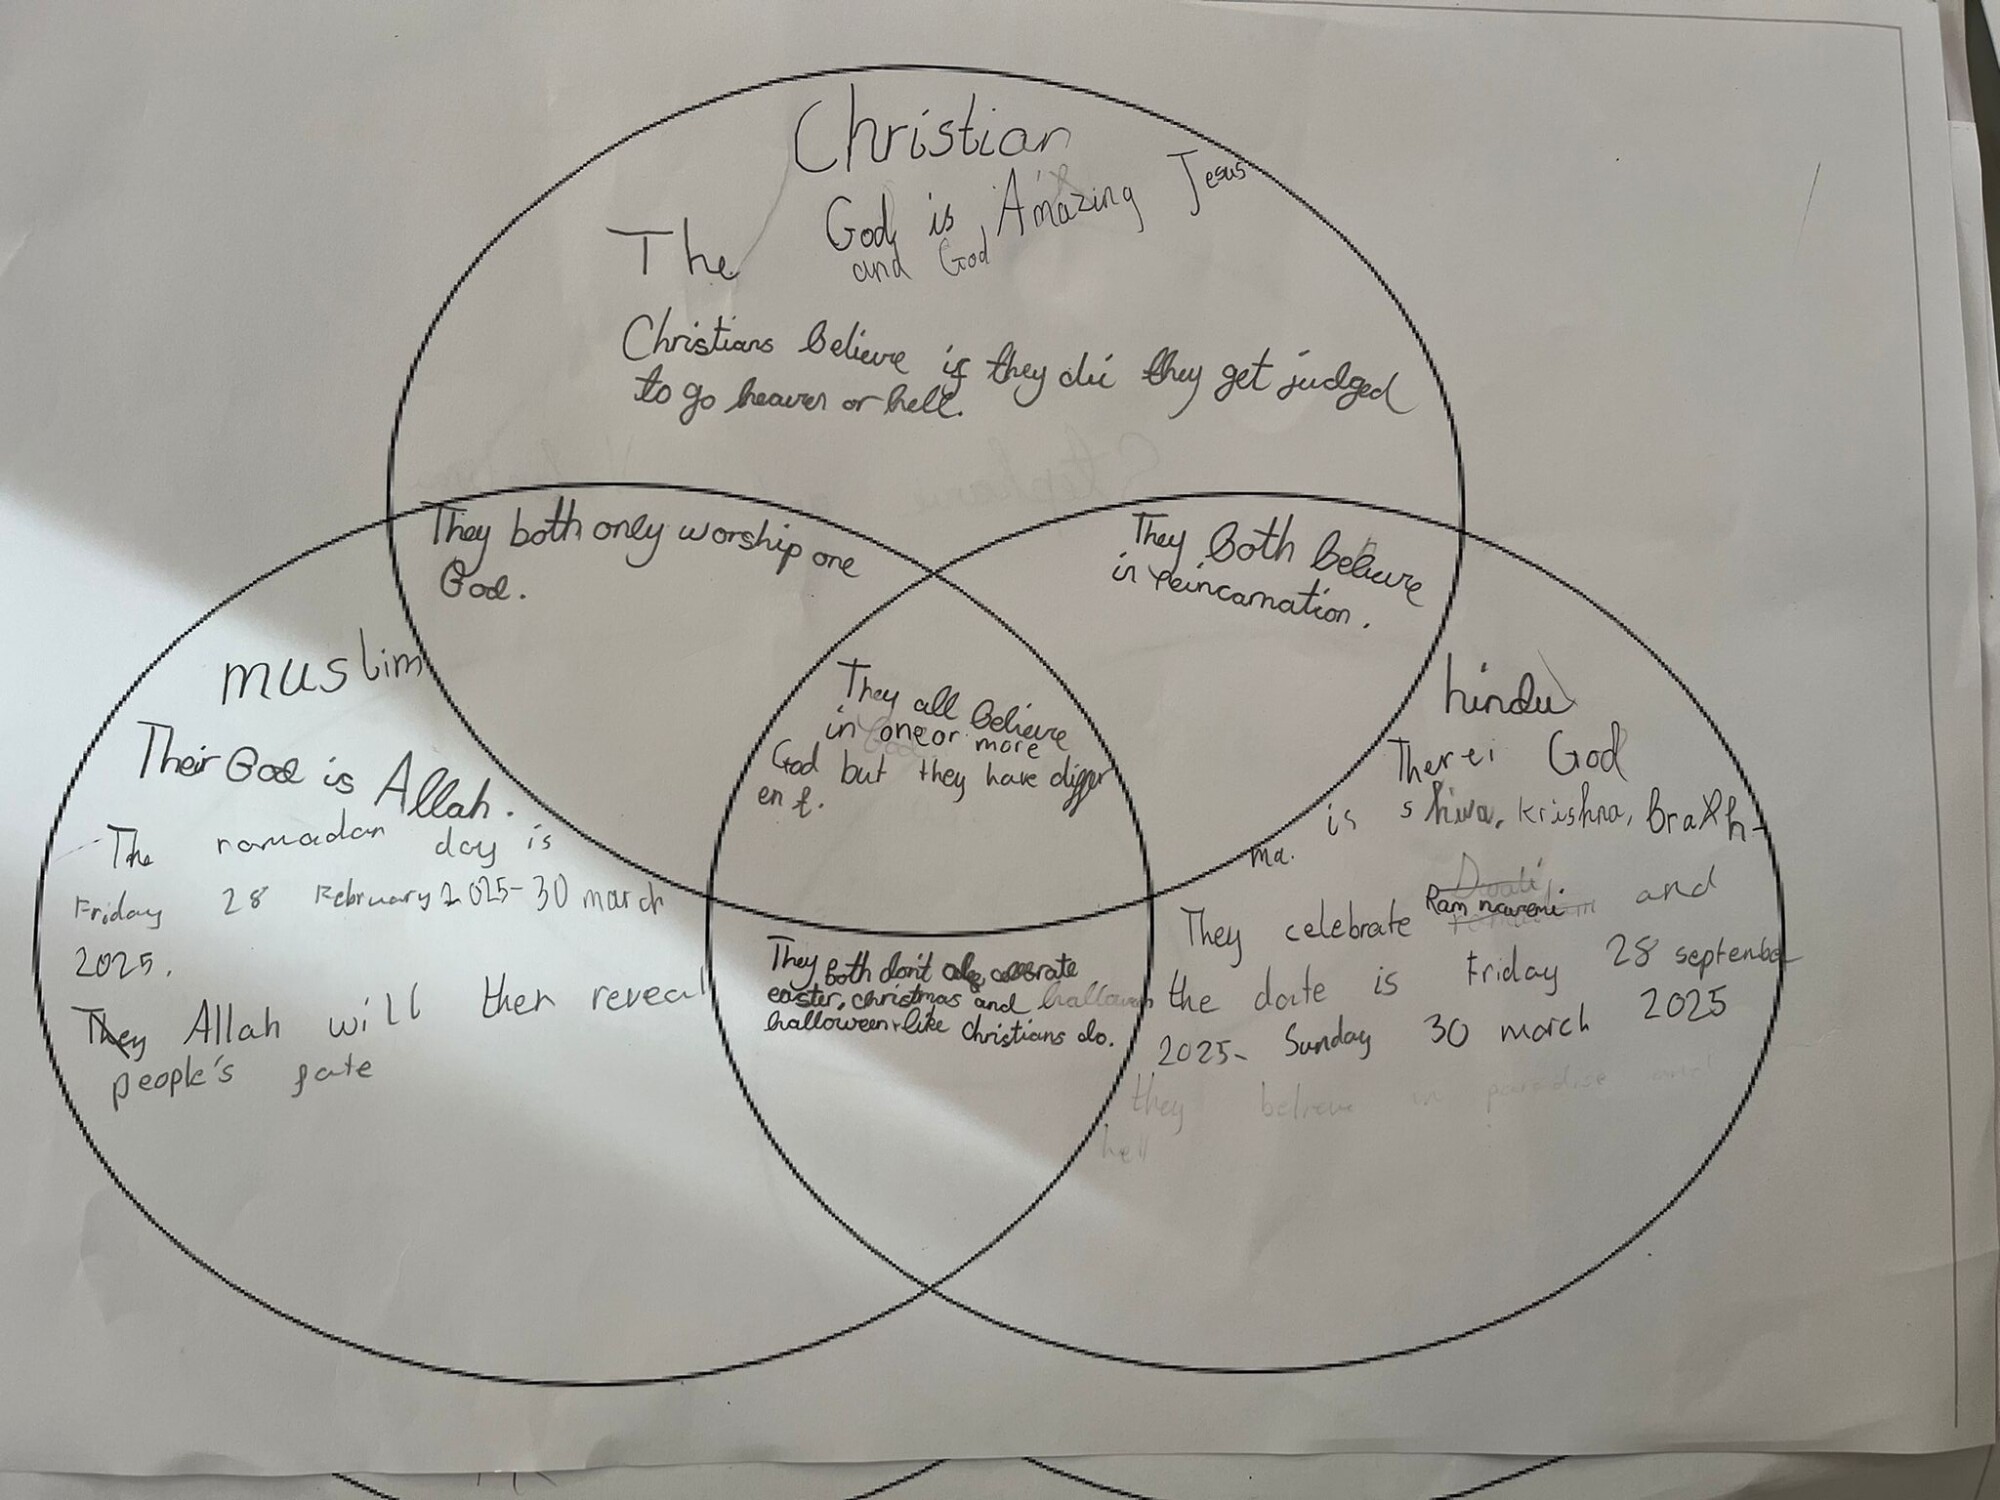 Christian
God is Amazing Jesus
and God
The
Christians believe if they die they get judged
to go heaven or hell.
They both only worship one
God.
They both believe
in reincarnation.
They all believe
in one or more
God but they have differ
ent.
muslim
Their God is Allah.
The ramadan day is
Friday 28 February 2025-30 march
2025.
They Allah will then reveal
people's fate
hindu
Therei God
is shiva, krishna, Brahh-
ma.
They celebrate Diwali Ram naveni. and
the date is Friday 28 september
2025- Sunday 30 march 2025
they believe in paradise and
hell
They both don't celebrate
easter, christmas and hallowen
halloween like Christians do.
Stephanie